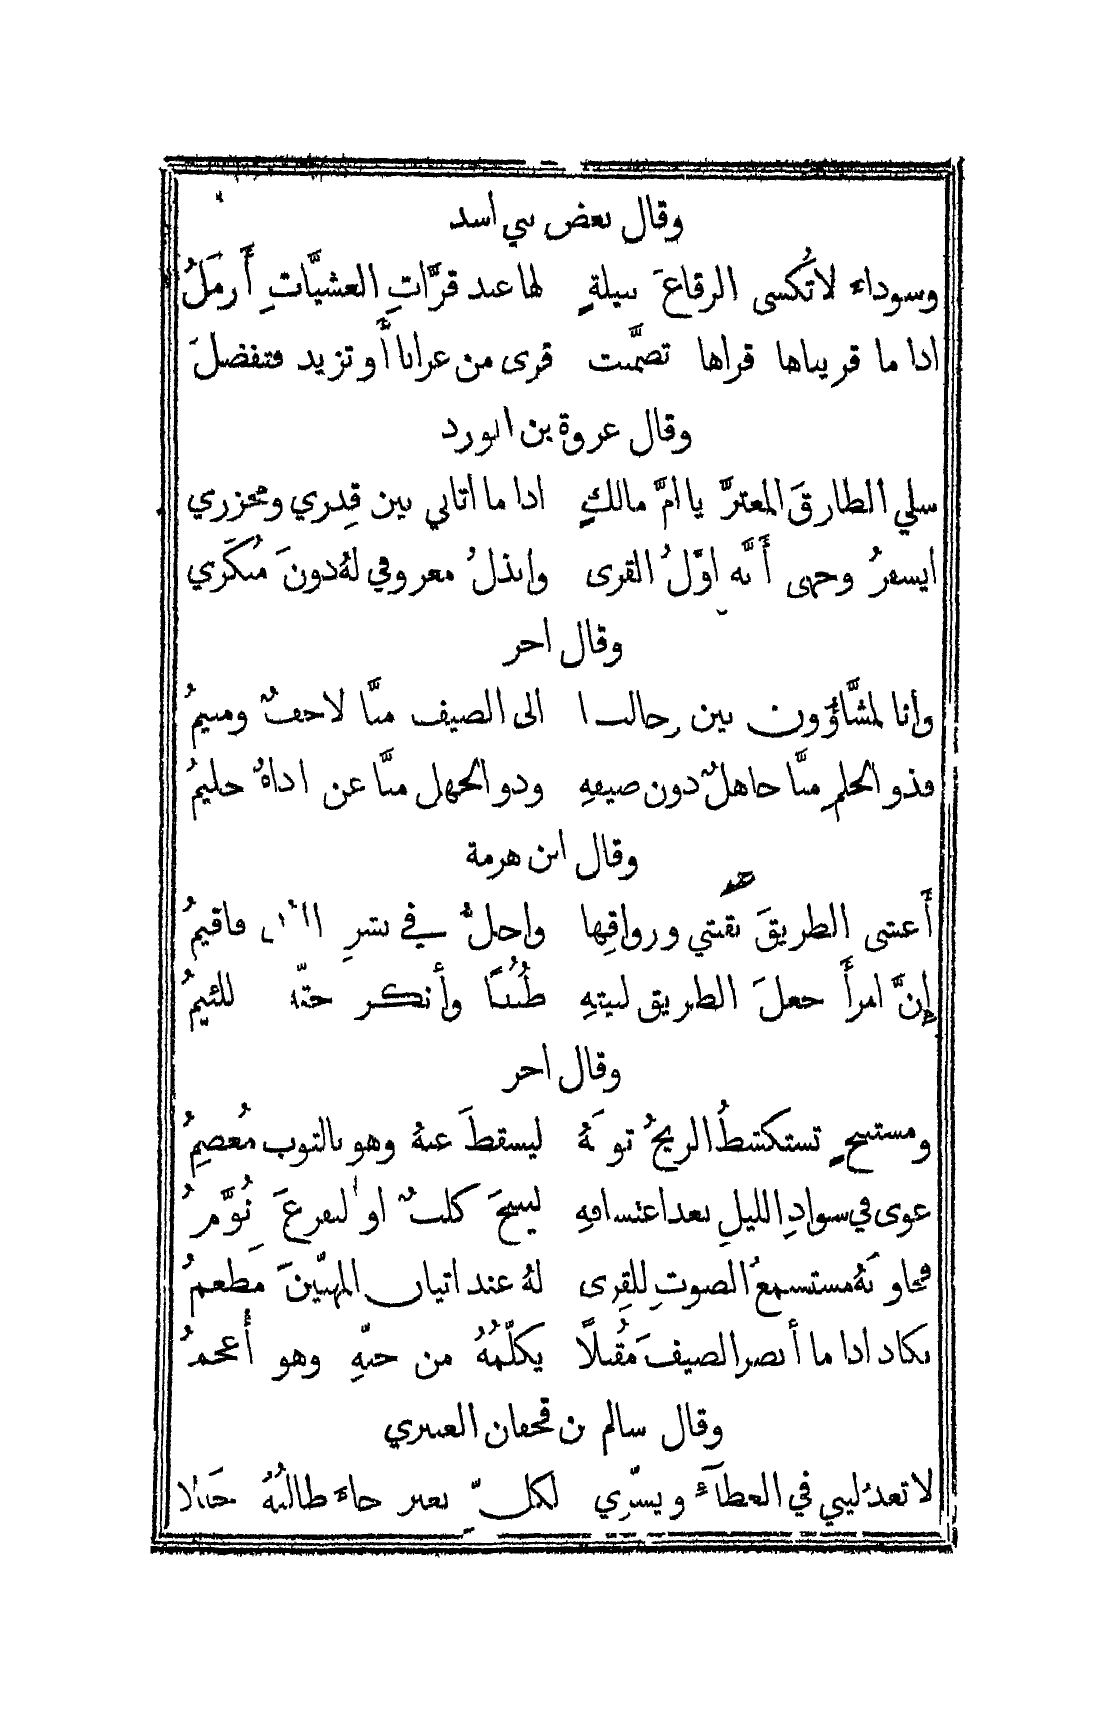 وقال بعض بني اسد
وسوداء لا تُكسى الرقاعَ نبيلةٍ لها عند قرَّاتِ العشيَّاتِ أَزمَلُ
اذا ما قريناها قراها تضمَّنت قرى من عرانا أَو تزيد فتفضلَ
وقال عروة بن الورد
سلي الطارقَ المعترَّ يا امَّ مالكٍ اذا ما اتاني بين قِدري ومجزري
ايسفرُ وجهي أَنَّه اوَّلُ القرى وابذلُ معروفي لهُ دونَ مُنكَري
وقال اخر
وإنا لمشَّاؤُون بين رحالنا الى الضيف منَّا لاحفٌ ومنيمُ
فذو الحلم منَّا جاهلٌ دون ضيفهِ وذو الجهل منَّا عن اذاهُ حليمُ
وقال ابن هرمة
أَغشى الطريقَ بقبتي ورواقِها واحلُّ في نشزِ فاقيمُ
إِنَّ امرأً جعلَ الطريق لبيتهِ طُنُبًا وأَنكر حقّهُ للئيمُ
وقال اخر
ومستنبحٍ تستكشطُ الريحُ ثوبَهُ ليسقطَ عنهُ وهو بالثوب مُعصِمُ
عوى في سوادِ الليلِ بعد اعتسافهِ لينبحَ كلبٌ او ليفزعَ نُوَّمُ
فجاوبَهُ مستسمعُ الصوتِ للقِرى لهُ عند اتيان المهبّينَ مَطعمُ
يكاد اذا ما أَبصر الضيفَ مُقبلًا يكلّمُهُ من حبّهِ وهو أَعجمُ
وقال سالم بن قحفان العنبري
لا تعذُليني في العطآءِ ويسّري لكلِّ بعير جاءَ طالبُهُ حَبلا